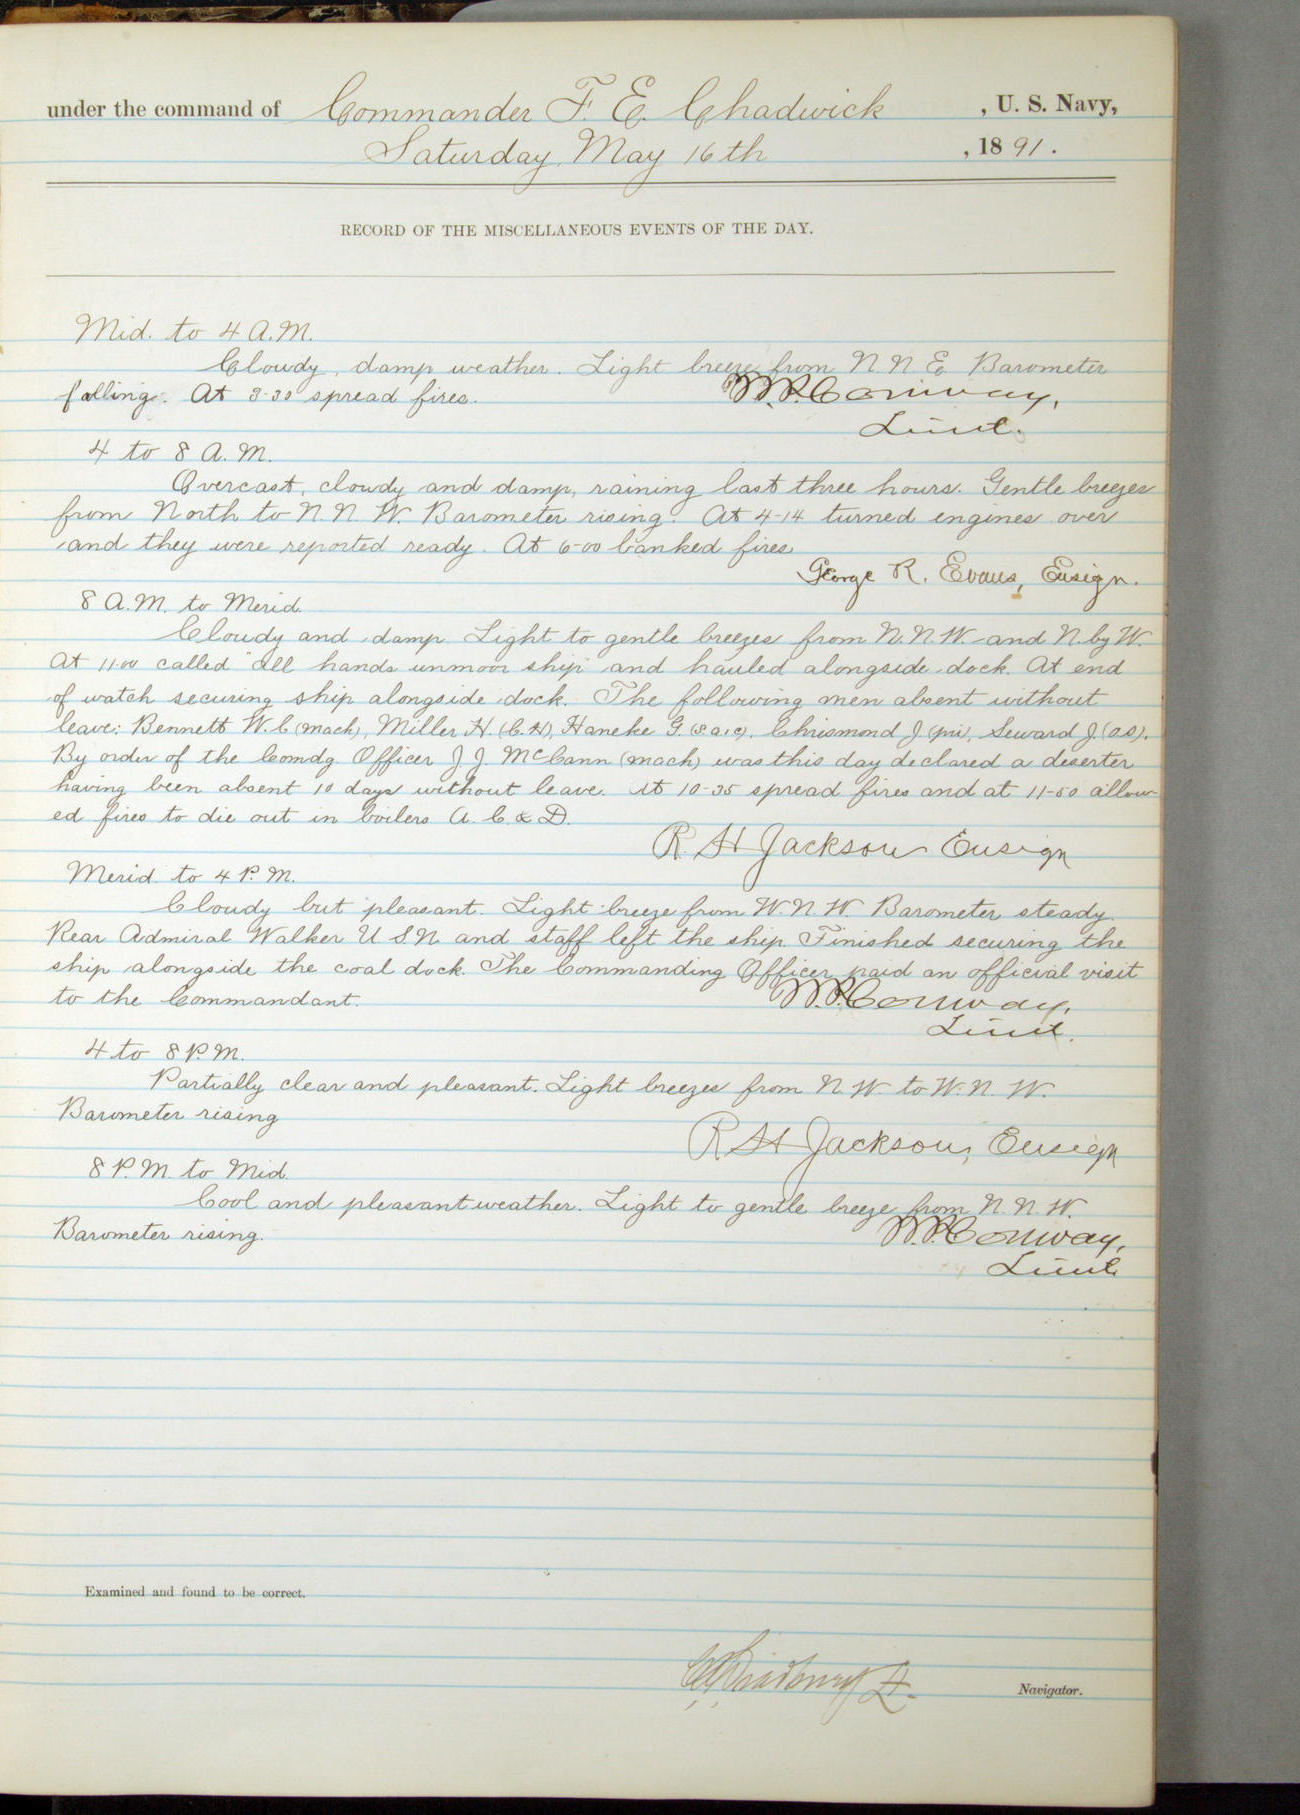 under the command of Commander F. E. Chadwick, U. S. Navy,
Saturday, May 16th, 1891.
RECORD OF THE MISCELLANEOUS EVENTS OF THE DAY.
Mid. to 4 A.M.
Cloudy, damp weather. Light breeze from N N E. Barometer
falling. At 3-30 spread fires.
W.P. Conway,
Lieut.
4 to 8 A.M.
Overcast, cloudy and damp, raining last three hours. Gentle breezes
from North to N N W. Barometer rising. At 4-14 turned engines over
and they were reported ready. At 6-00 banked fires
George R. Evans, Ensign.
8 A.M. to Merid.
Cloudy and damp. Light to gentle breezes from N.N.W. and N. by W.
At 11-00 called "all hands unmoor ship" and hauled alongside dock. At end
of watch securing ship alongside dock. The following men absent without
leave: Bennett W. C (mach), Miller H. (C.H), Haneke G. (S.a.1.c), Chrismond J. (pri), Seward J. (a.s).
By order of the Comdg. Officer J. J. McCann (mach) was this day declared a deserter
having been absent 10 days without leave. At 10-35 spread fires and at 11-50 allow-
ed fires to die out in boilers A. C. & D.
R H Jackson Ensign
Merid. to 4 P.M.
Cloudy but pleasant. Light breeze from W. N. W. Barometer steady.
Rear Admiral Walker U S N and staff left the ship. Finished securing the
ship alongside the coal dock. The Commanding Officer paid an official visit
to the Commandant.
W.P. Conway,
Lieut.
4 to 8 P.M.
Partially clear and pleasant. Light breezes from N. W. to W. N. W.
Barometer rising
R H Jackson, Ensign
8 P.M. to Mid.
Cool and pleasant weather. Light to gentle breeze from N. N. W.
Barometer rising.
W.P. Conway,
Lieut
Examined and found to be correct.
Navigator.